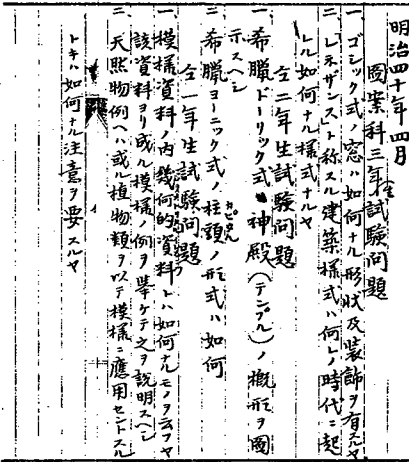 明治四十年四月
図案科三年試験問題
一、ゴシック式ノ窓ハ如何ナル形状及装飾ヲ有スルヤ
二、「レネザンス」ト称スル建築様式ハ何レノ時代ニ起
レル如何ナル様式ナルヤ
仝二年生試験問題
一、希臘ドーリック式神殿(テンプル)ノ概形ヲ図
示スヘシ
二、希臘ヨーニック式ノ柱頭ノ形式ハ如何
仝一年生試験問題
一、模様資料ノ内幾何的資料トハ如何ナルモノヲ云フヤ
該資料ヨリ成ル模様ノ例ヲ挙ケテ之ヲ説明スヘシ
二、天然物例ヘハ或ル植物類ヲ以テ模様ニ應用セントスル
トキハ如何ナル注意ヲ要スルヤ